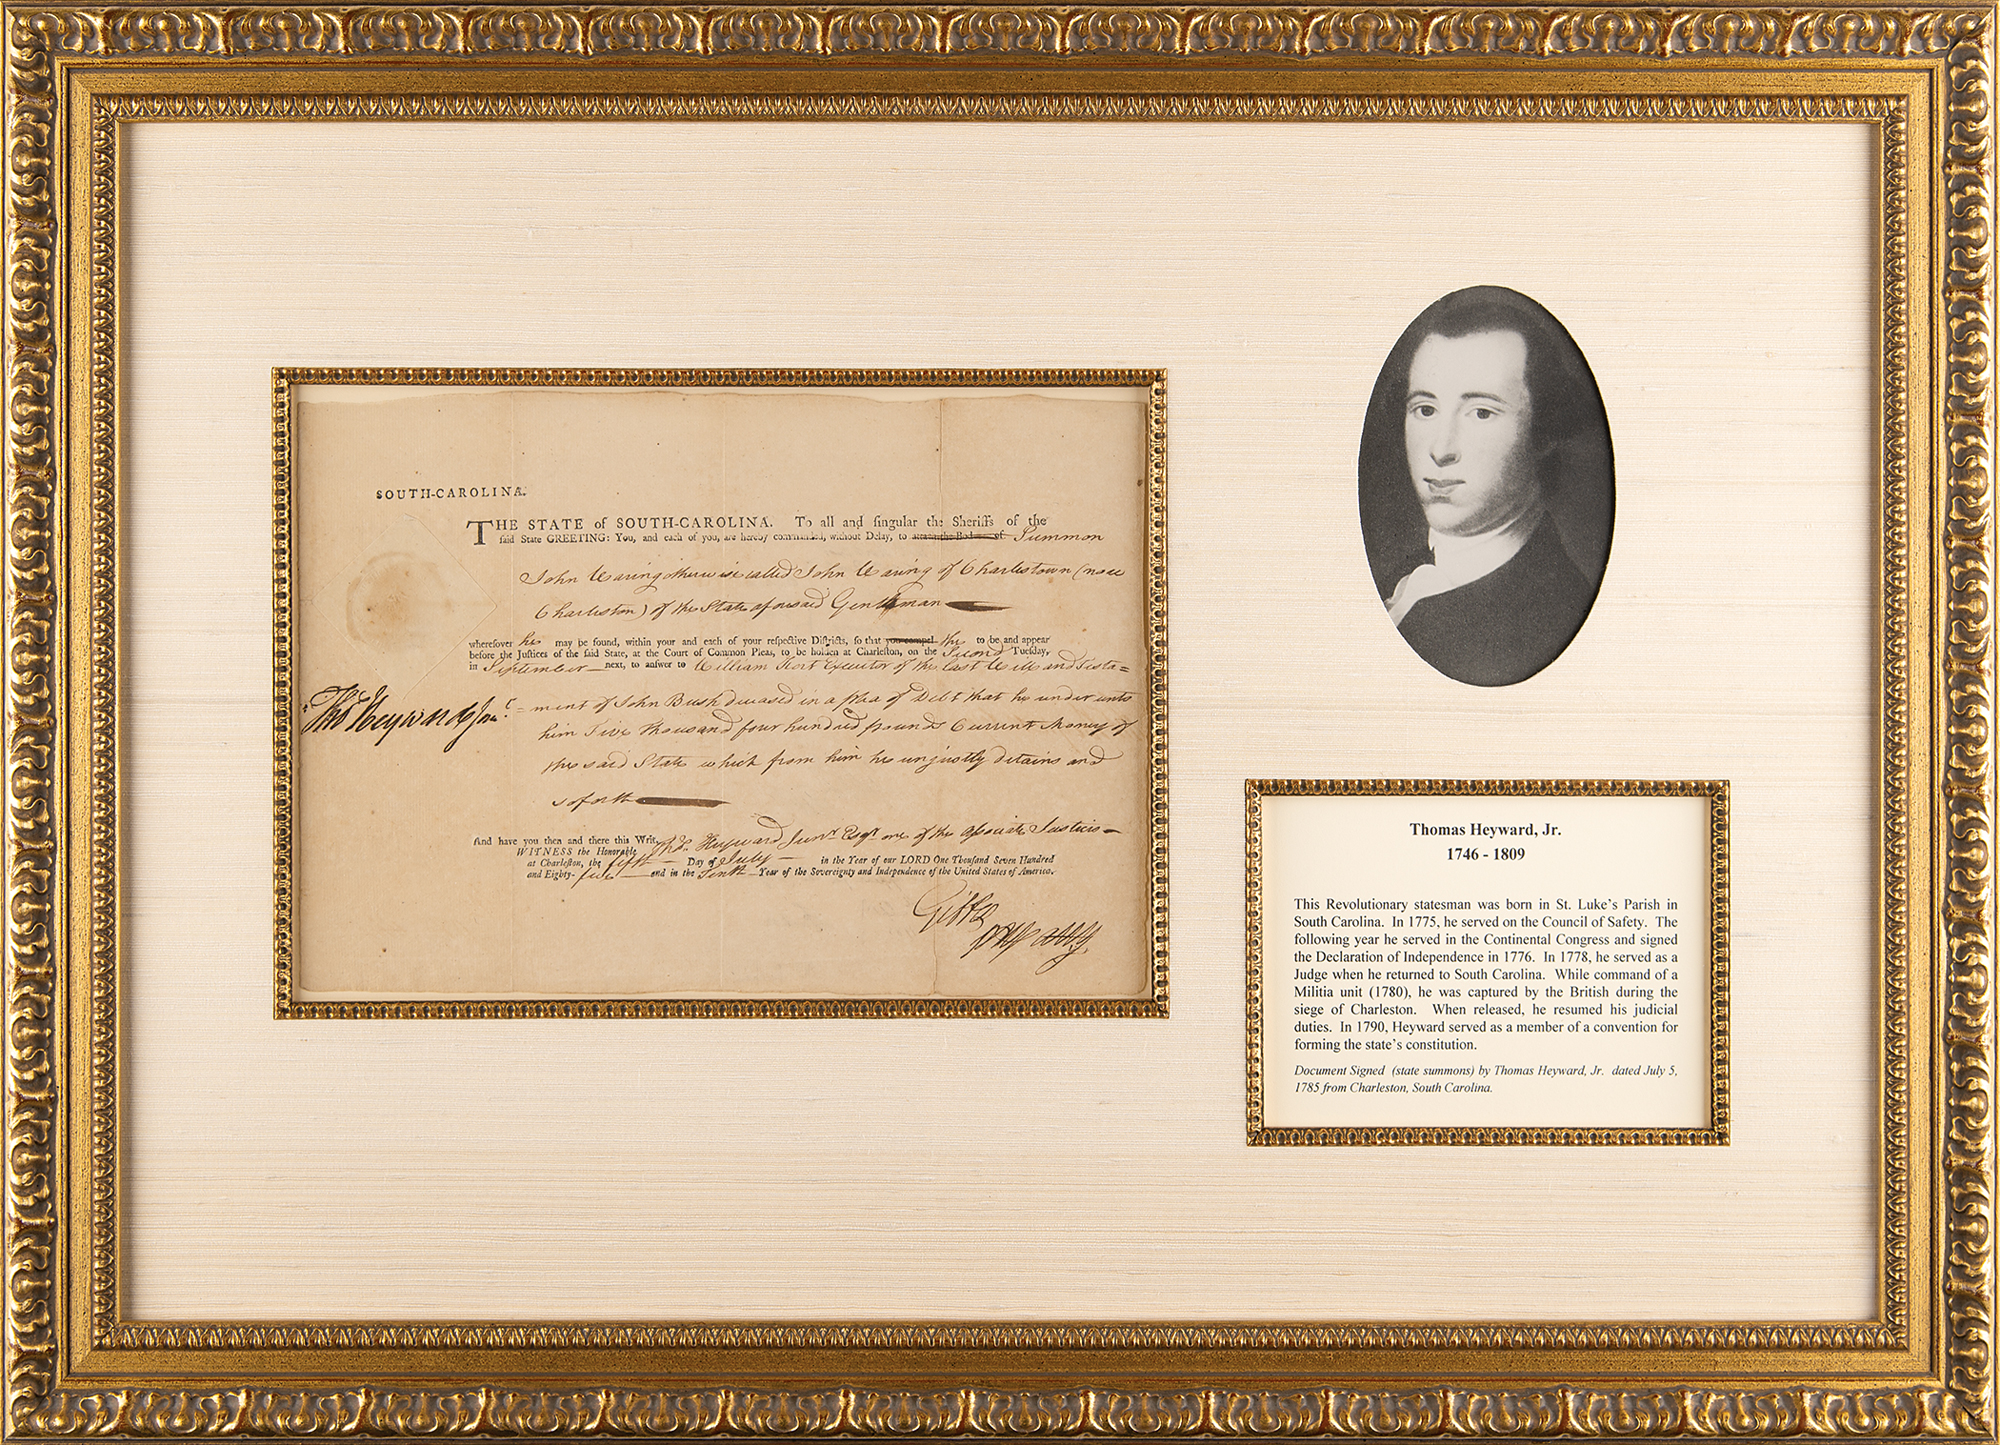 SOUTH-CAROLINA.
THE STATE of SOUTH-CAROLINA. To all and singular the Sheriffs of the
said State GREETING: You, and each of you, are hereby commanded, without Delay, to attach the Bod of Summon
John Waring otherwise called John Waring of Charlestown (now
Charleston) of the State aforesaid Gentleman
wheresoever he may be found, within your and each of your respective Districts, so that you compel to be and appear
before the Justices of the said State, at the Court of Common Pleas, to be holden at Charleston, on the Second Tuesday,
in September next, to answer to William Executor of the last Will and Testa=
Thos Heyward Junr.
=ment of John Bush deceased in a plea of Debt that he under unto
him Five thousand four hundred pounds Current Money of
the said State which from him he unjustly detains and
soforth
And have you then and there this Writ.
WITNESS the Honorable Thos. Heyward Junr. Esqr. one of the Associate Justices
at Charleston, the fifth Day of July in the Year of our LORD One Thousand Seven Hundred
and Eighty-five and in the Tenth Year of the Sovereignty and Independence of the United States of America.
Thomas Heyward, Jr.
1746 - 1809
This Revolutionary statesman was born in St. Luke's Parish in
South Carolina. In 1775, he served on the Council of Safety. The
following year he served in the Continental Congress and signed
the Declaration of Independence in 1776. In 1778, he served as a
Judge when he returned to South Carolina. While command of a
Militia unit (1780), he was captured by the British during the
siege of Charleston. When released, he resumed his judicial
duties. In 1790, Heyward served as a member of a convention for
forming the state's constitution.
Document Signed (state summons) by Thomas Heyward, Jr. dated July 5,
1785 from Charleston, South Carolina.